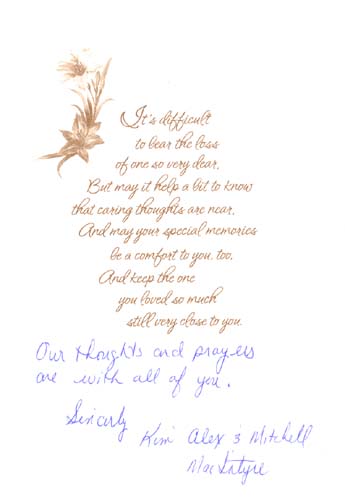 It's difficult
to bear the loss
of one so very dear,
But may it help a bit to know
that caring thoughts are near,
And may your special memories
be a comfort to you, too,
And keep the one
you loved so much
still very close to you.
Our thoughts and prayers
are with all of you.
Sincerly
Kim Alex & Mitchell
MacIntyre